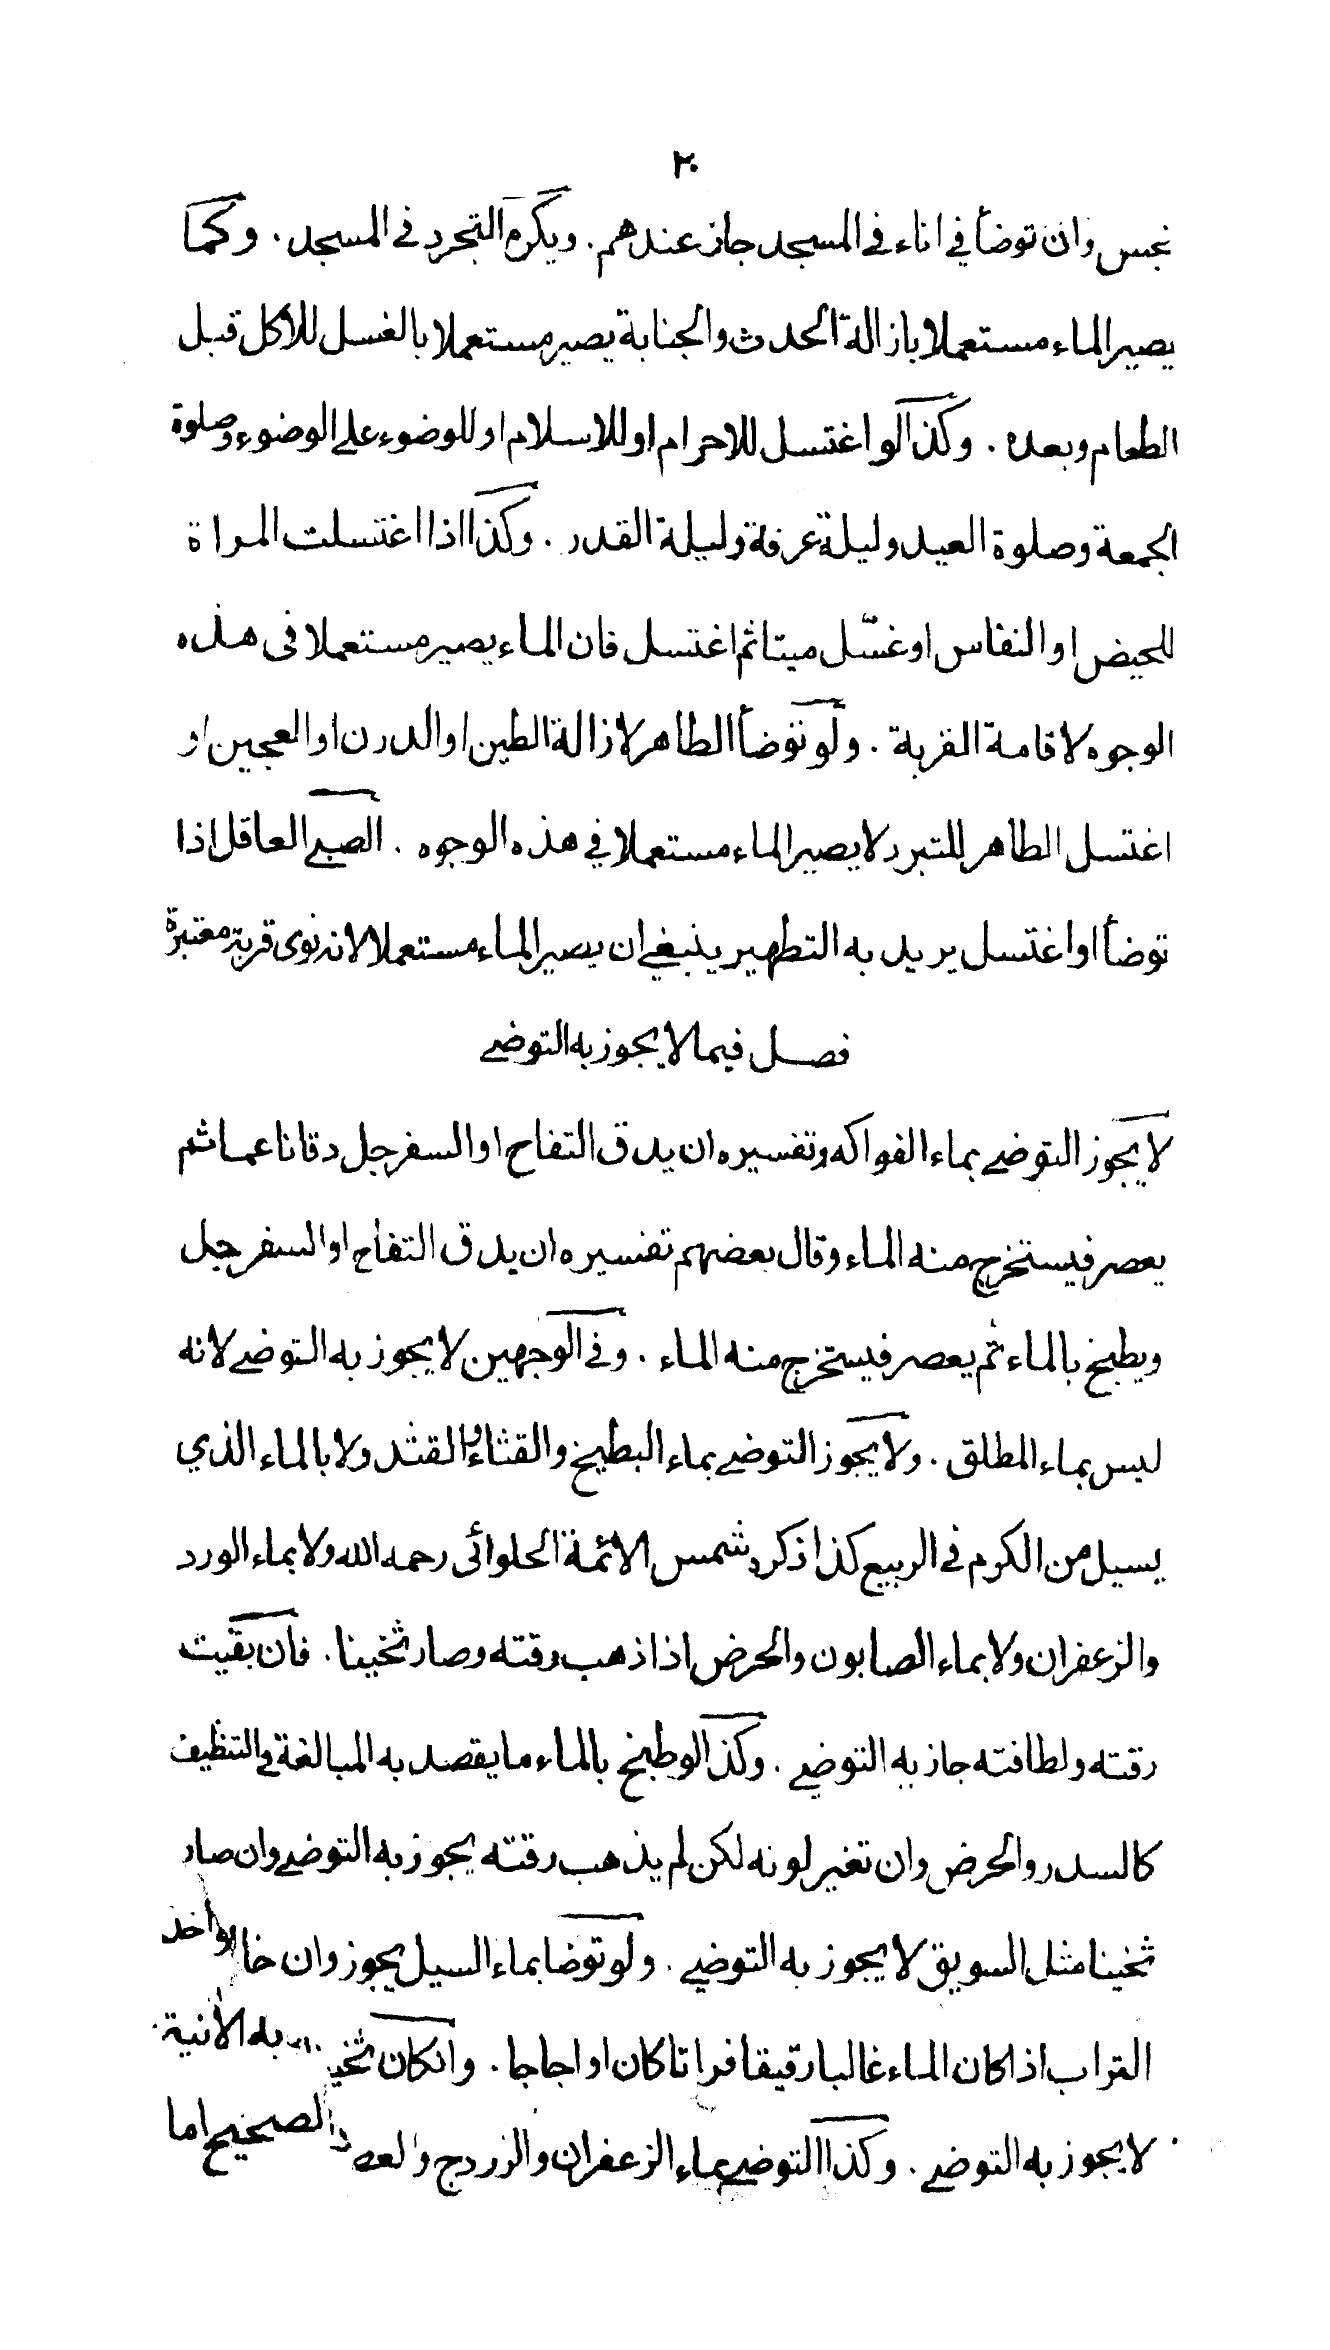 ٢٠
نجس وان توضأ في اناء في المسجد جاز عندهم . ويكره التجرد في المسجد . وكما
يصير الماء مستعملا بازالة الحدث والجنابة يصير مستعملا بالغسل للأكل قبل
الطعام وبعده . وكذا لو اغتسل للاحرام او للاسلام او للوضوء على الوضوء وصلوة
الجمعة وصلوة العيد وليلة عرفة وليلة القدر . وكذا اذا اغتسلت المراة
للحيض او النفاس او غسّل ميتا ثم اغتسل فان الماء يصير مستعملا في هذه
الوجوه لاقامة القربة . ولو توضأ الطاهر لازالة الطين او الدرن او العجين او
اغتسل الطاهر للتبرد لا يصير الماء مستعملا في هذه الوجوه . الصبي العاقل اذا
توضأ او اغتسل يريد به التطهير ينبغي ان يصير الماء مستعملا لانه نوى قربة معتبرة
فصل فيما لا يجوز به التوضي
لا يجوز التوضي بماء الفواكه وتفسيره ان يدق التفاح او السفرجل دقا ناعما ثم
يعصر فيستخرج منه الماء وقال بعضهم تفسيره ان يدق التفاح او السفرجل
ويطبخ بالماء ثم يعصر فيستخرج منه الماء . وفي الوجهين لا يجوز به التوضي لانه
ليس بماء المطلق . ولا يجوز التوضي بماء البطيخ والقثاء والقثد ولا بالماء الذي
يسيل من الكرم في الربيع كذا ذكره شمس الائمة الحلوائى رحمه الله ولا بماء الورد
والزعفران ولا بماء الصابون والحرض اذا ذهب رقته وصار ثخينا . فان بقيت
رقته ولطافته جاز به التوضي . وكذا لو طبخ بالماء ما يقصد به المبالغة في التنظيف
كالسدر والحرض وان تغير لونه لكن لم يذهب رقته يجوز به التوضي وان صار
ثخينا مثل السويق لا يجوز به التوضي . ولو توضا بماء السيل يجوز وان خا
التراب اذا كان الماء غالبا رقيقا فراتا كان او اجاجا . وانكان به الآنية
لا يجوز به التوضي . وكذا التوضي بماء الزعفران والزردج الصحيح اما